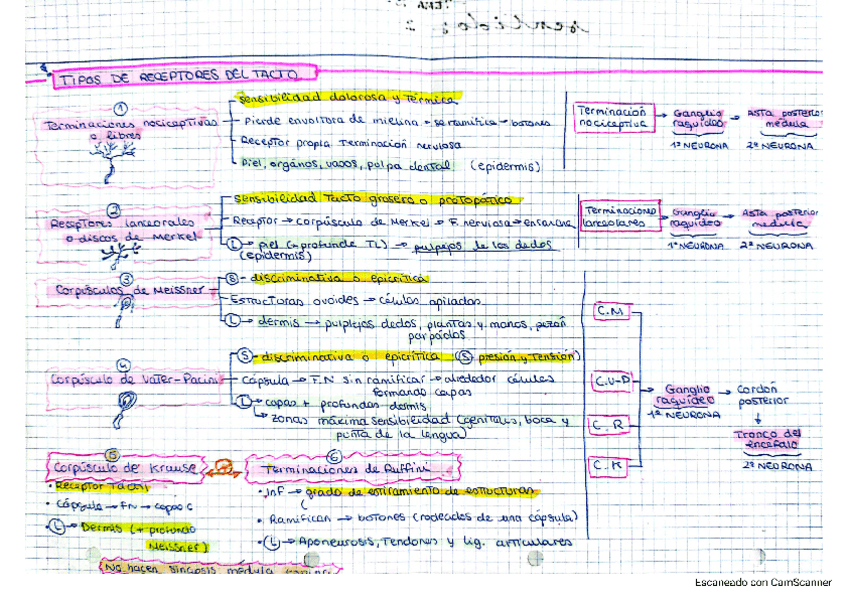 TIPOS DE RECEPTORES DEL TACTO
①
Terminaciones nociceptivas
o libres
sensibilidad dolorosa y térmica
Pierde envoltura de mielina → se ramifica → botones
Receptor propia terminación nerviosa
Piel, órganos, vasos, pulpa dental (epidermis)
Terminación
nociceptiva
Ganglio
raquídeo
1ª NEURONA
Asta posterior
médula
2ª NEURONA
②
Receptores lanceorales
o discos de Merkel
sensibilidad tacto grosero o protopático
Receptor → corpúsculo de Merkel → F. nerviosa →
L → piel (+ profunda TL) → pulpejos de los dedos
(epidermis)
Terminaciones
Ganglio
raquídeo
1ª NEURONA
Asta posterior
médula
2ª NEURONA
③
Corpúsculos de Meissner
S - discriminativa o epicrítica
Estructuras ovoides → células apiladas
L → dermis → pulpejos dedos, plantas y manos, pezón
parpados
④
Corpúsculo de Vater-Pacini
S - discriminativa o epicrítica (S presión y tensión)
Cápsula → F.N sin ramificar → alrededor células
formando capas
L → capas + profundas dermis
zonas máxima sensibilidad (genitales, boca y
punta de la lengua)
C.M
C.V-P
C.R
C.K
Ganglio
raquídeo
1ª NEURONA
Cordón
posterior
Tronco del
encéfalo
2ª NEURONA
⑤
Corpúsculo de Krause
• Receptor táctil
• Cápsula → FN → capas C
• L → Dermis (+ profundo
Meissner)
⑥
Terminaciones de Ruffini
• Inf → grado de estiramiento de estructuras
• Ramifican → botones (rodeados de una cápsula)
• L → Aponeurosis, Tendones y lig. articulares
No hacen sinapsis médula
Escaneado con CamScanner